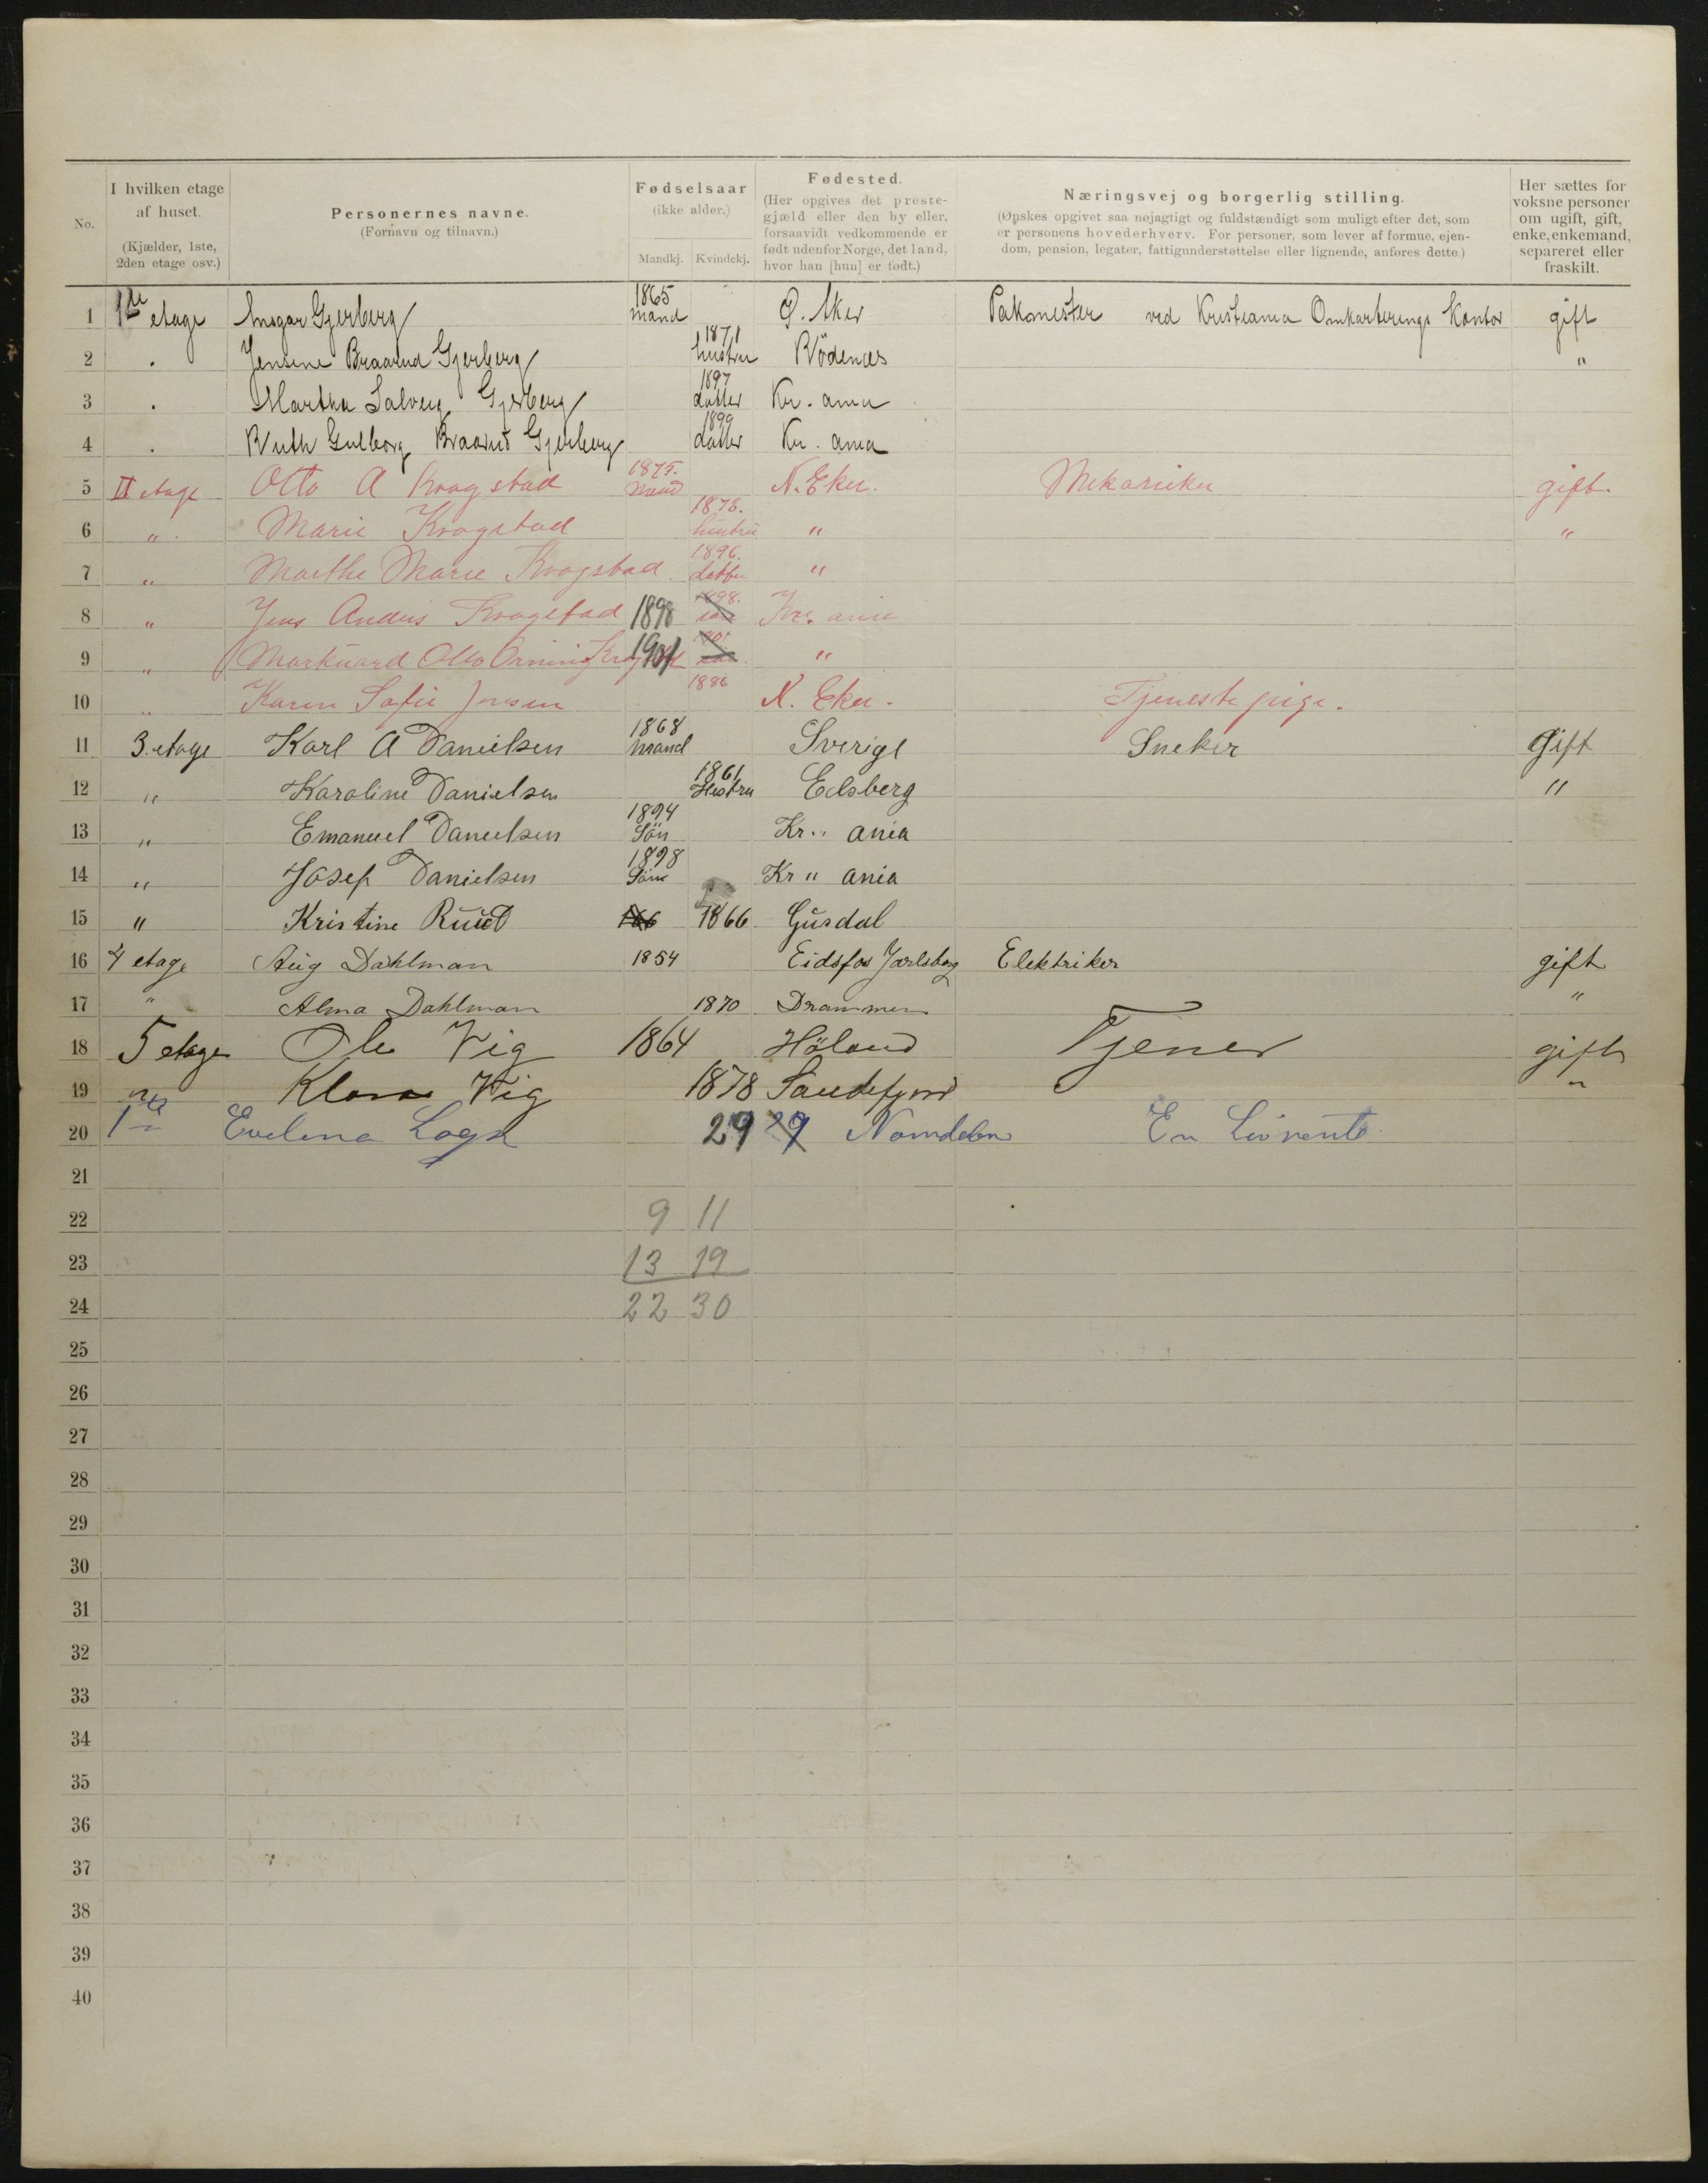 No. | I hvilken etage af huset. (Kjælder, 1ste, 2den etage osv.) | Personernes navne. (Fornavn og tilnavn.) | Fødselsaar (ikke alder.) Mandkj. Kvindekj. | Fødested. (Her opgives det prestegjæld eller den by eller, forsaavidt vedkommende er født udenfor Norge, det land, hvor han [hun] er født.) | Næringsvej og borgerlig stilling. (Ønskes opgivet saa nøjagtigt og fuldstændigt som muligt efter det, som er personens hovederhverv. For personer, som lever af formue, ejendom, pension, legater, fattigunderstøttelse eller lignende, anføres dette.) | Her sættes for voksne personer om ugift, gift, enke, enkemand, separeret eller fraskilt.
1 1ste etage Ansgar Gjerberg 1865 mand Ø. Aker Pakmester ved Kristiania Omkarterings Kontor gift
2 . Jensine Braarud Gjerberg 1871 hustru Rödenes "
3 . Martha Solveig Gjerberg 1897 datter Kr. ania
4 . Ruth Gulborg Braarud Gjerberg 1899 datter Kr. ania
5 II etage Otto A Krogstad 1875. mand N. Eker. Mekaniker gift.
6 " Marie Krogstad 1878. hustru " "
7 " Marthe Marie Krogstad 1896. datter "
8 " Jens Anders Krogstad 1898 1898. Kr. ania
9 " Markuard Otto 1901 1901 "
10 " Karen Sofie Jensen 1886 N. Eker. Tjenestepige.
11 3. etage Karl A Danielsen 1868 Mand Sverige Sneker Gift
12 " Karoline Danielsen 1861 Hustru Edsberg "
13 " Emanuel Danielsen 1894 Sön Kr " ania
14 " Josef Danielsen 1898 Sön Kr " ania
15 " Kristine Ruud 186 1866 Gusdal
16 4 etage Aug Dahlman 1854 Eidsfos Jarlsberg Elektriker gift
17 " Alma Dahlman 1870 Drammen "
18 5 etage Ole Vig 1864 Höland Tjener gift
19 " Klara Vig 1878 Sandefjord "
20 1ste Evelina 29 29 Namdalen En Livrente
21
22 9 11
23 13 19
24 22 30
25
26
27
28
29
30
31
32
33
34
35
36
37
38
39
40